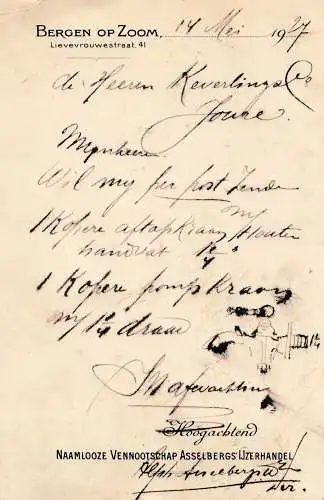 BERGEN OP ZOOM, 14 Mei 1927
Lievevrouwestraat. 41
de Heeren Keverling & Co
Joure.
Mynheeren
Wil my per post Zenden
1 Kopere aftapkraan m/ Houten
handvat 1 1/4"
1 Kopere pompkraan
m/ 1 1/4 draad
1 1/4
In afwachting
Hoogachtend
NAAMLOOZE VENNOOTSCHAP ASSELBERGS' IJZERHANDEL
Alph Asselbergs
Dir.